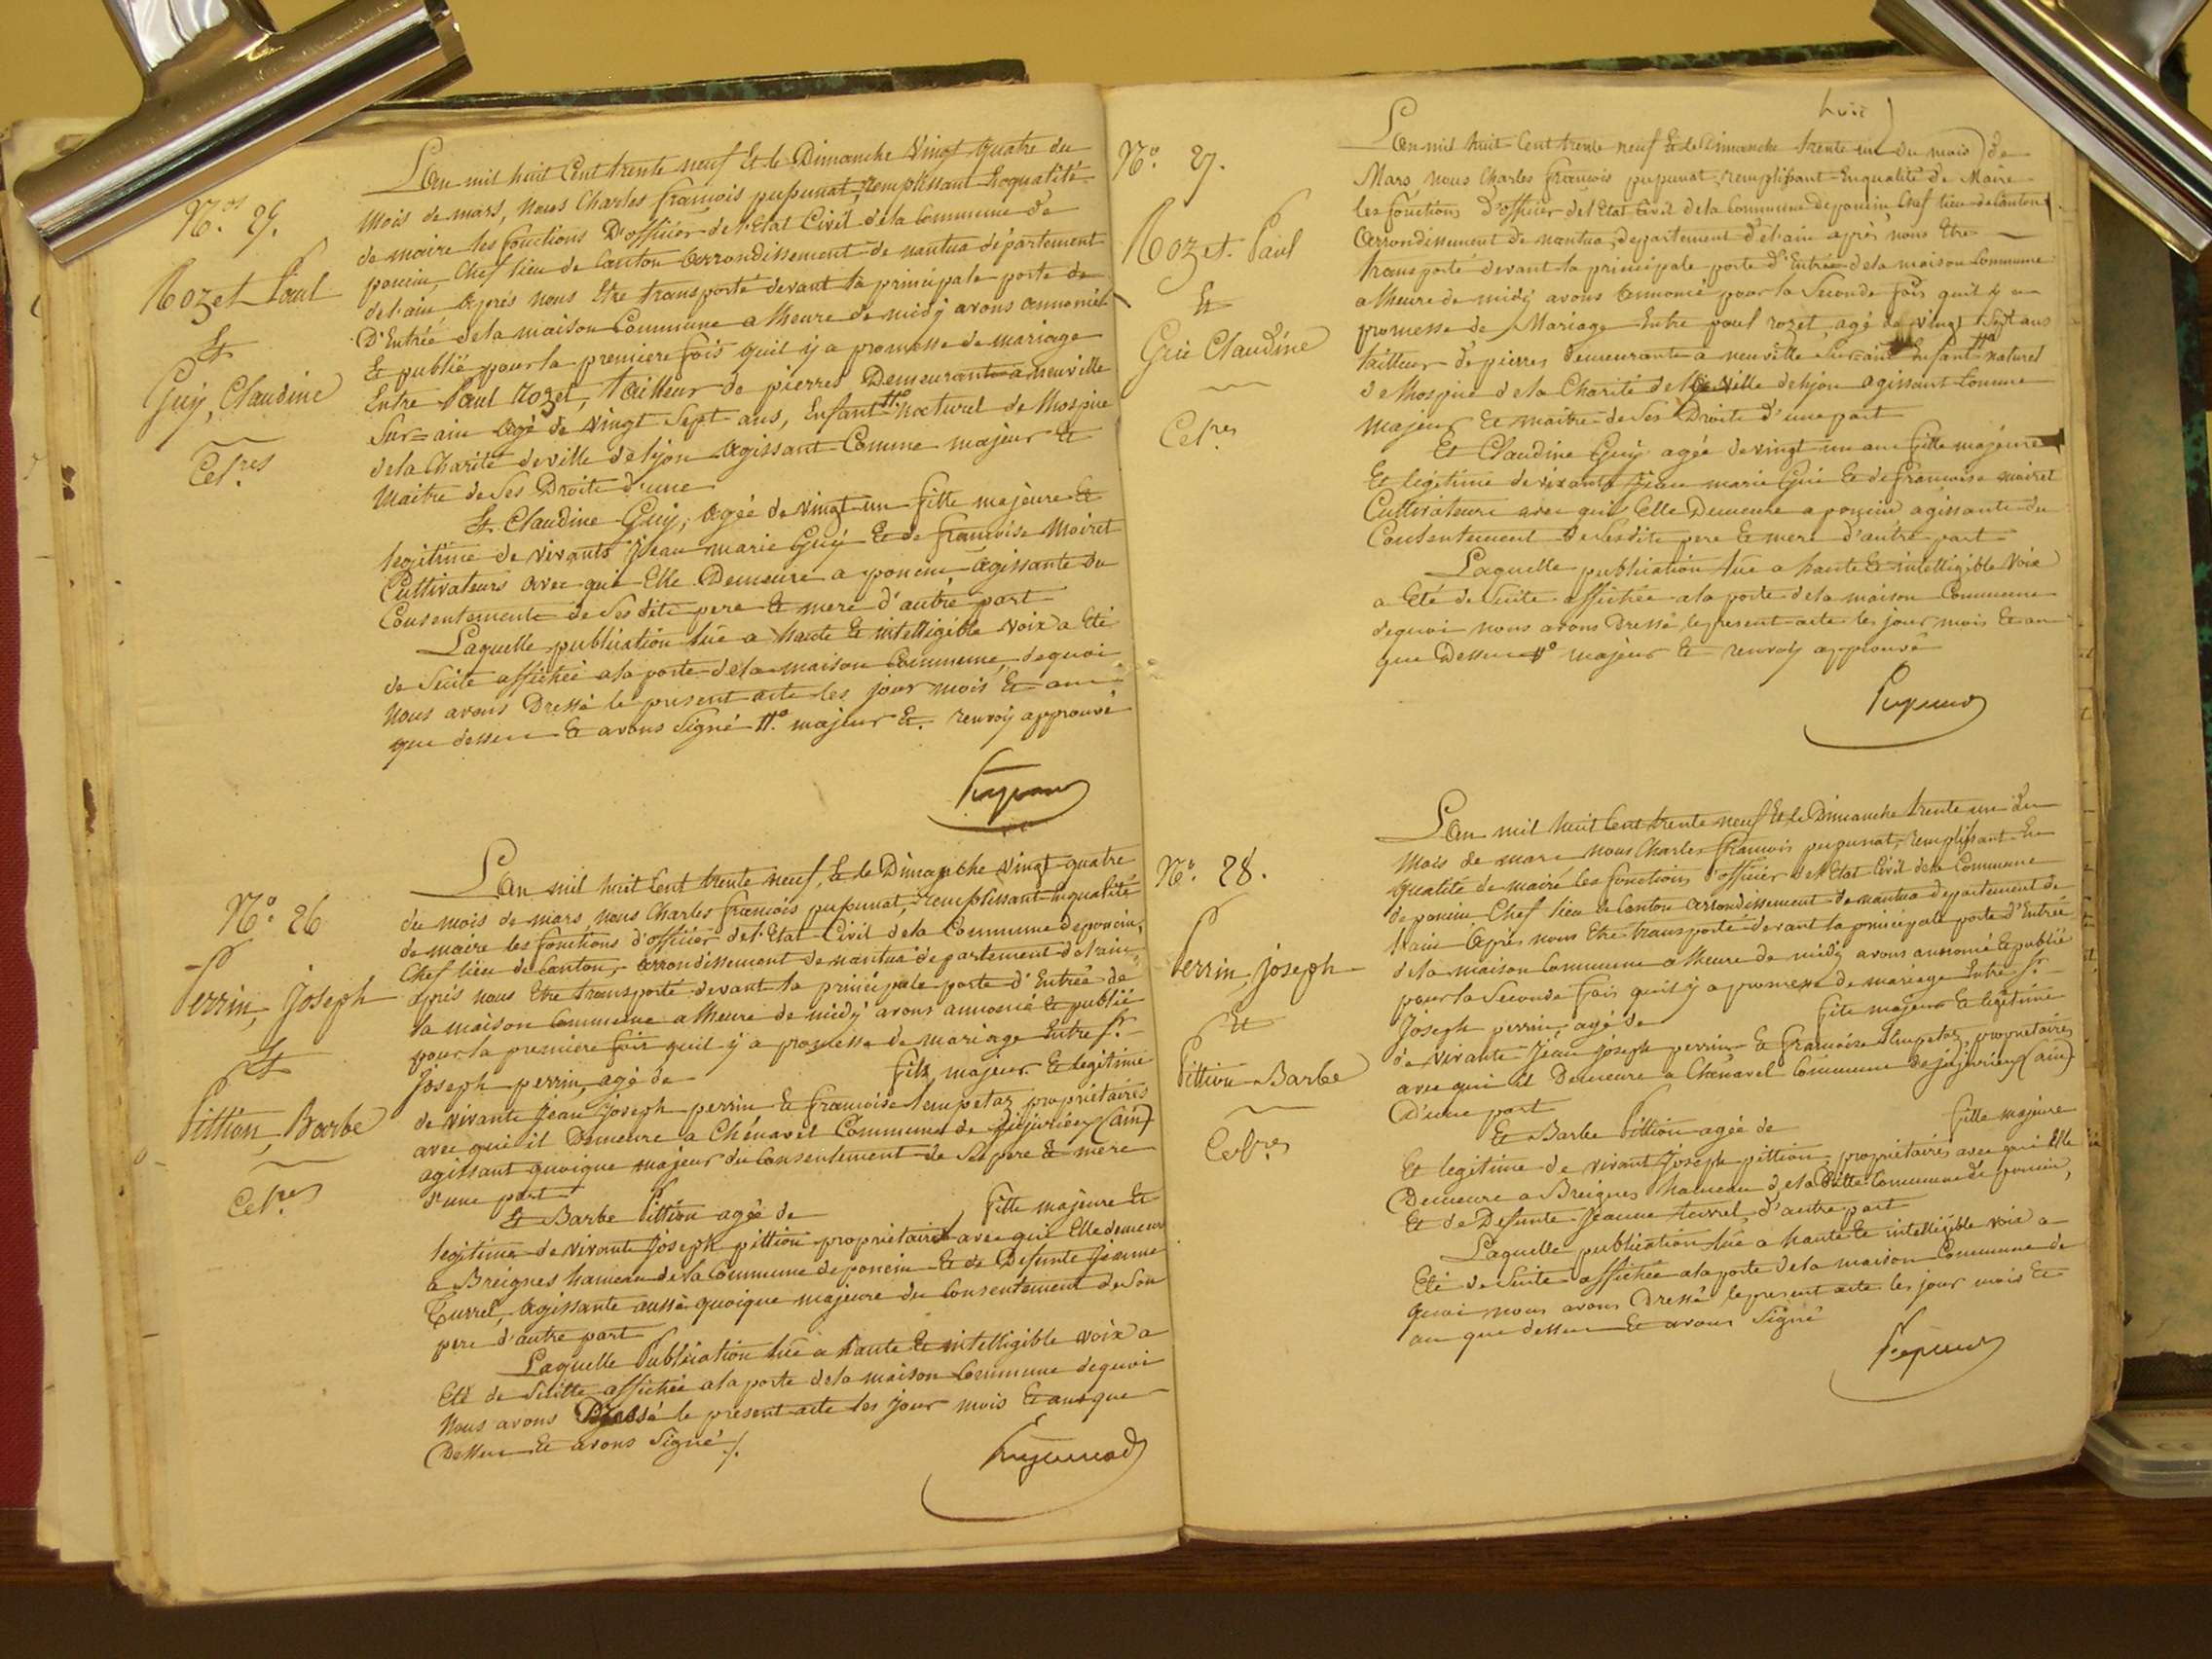 N.os 25.
Rozet Paul
Et
Guy, Claudine
Cel.res
L'an mil huit Cent trente neuf Et le Dimanche Vingt quatre du
mois de mars, nous Charles francois pupunat, remplissant Enqualité
de maire les fonctions D'officier de l'Etat Civil dela Commune de
poncin, Chef lieu de Canton Arrondissement de nantua département
del'ain Après nous Etre transporté devant la principale porte de
D'Entrée dela maison Commune a lheure de midy avons annoncé
Et publié pour la premiere fois quil y a promesse de mariage
Entre Paul Rozet, tailleur de pierres Demeurant a neuville
Sur=ain Agé de vingt Sept ans, Enfant #o naturel de lhospice
dela Charité deville de lyon Agissant Comme majeur Et
Maitre de Ses Droits d'une
Et Claudine Guy, Agée de vingt un fille majeure Et
legitime de vivants Jean marie Guy Et de francoise Moiret
Cultivateurs avec qui Elle Demeure a poncin agissante du
Consentement de Ses dits pere Et mere d'autre part
Laquelle publication lue a haute Et intelligible voix a Eté
de Suite affichée ala porte dela maison Commune, dequoi
Nous avons Dressé le present acte les jour mois Et an
que dessus Et avons Signé #o. majeur Et. renvoy approuvé
Pupunat
N.o 26
Perrin, Joseph
Et
Pittion, Barbe
Cel.res
L'an mil huit Cent trente neuf, Et le Dimanche vingt quatre
du mois de mars, nous Charles francois pupunat, remplissant Enqualité
de maire les fonctions d'officier del'Etat Civil dela Commune deponcin,
Chef lieu de Canton, arrondissement de nantua departement del'ain
Après nous Etre transporté devant la principale porte d'Entrée de
la maison Commune a lheure de midy avons annoncé Et publié
pour la premiere fois quil y a promesse de mariage Entre Sr.
Joseph perrin, agé de fils majeur Et legitime
de vivants Jean Joseph perrin Et francoise tempetaz propriétaires
avec qui il Demeure a Chénavel Commune de jujurieux (ain)
agissant quoique majeur du Consentement de Ses pere Et mere
d'une part
Et Barbe Pittion agée de fille majeure Et
legitime de vivants Joseph pittion propriétaire avec qui Elle demeure
a Breignes hameau dela Commune de poncin Et de Defunte Jeanne
Turrel, Agissante aussi quoique majeure du Consentement de Son
pere d'autre part
Laquelle Publication lue a haute Et intelligible voix a
Eté de Suitte affichée ala porte dela maison Commune dequoi
Nous avons Dressé le present acte les jour mois Et an que
Dessus Et avons Signé ./.
Pupunat
huit
N.o 27.
Rozet Paul
Et
Guie Claudine
Cel.res
L'an mil huit Cent trente neuf Et le Dimanche trente un du mois de
Mars, nous Charles francois pupunat, remplissant Enqualité de Maire
les fonctions d'officier del'Etat Civil dela Commune deponcin Chef lieu deCanton
Arrondissement de nantua, departement d'el'ain après nous Etre
transporté devant la principale porte d'Entrée dela maison Commune
a lheure de midy avons Annoncé pour la Seconde fois quil y a
promesse de Mariage Entre paul rozet, agé de vingt Sept ans
tailleur de pierres demeurante a neuville Sur=ain Enfant #o naturel
de lhospice dela Charité de la ville de lyon agissant Comme
Majeur Et maitre de Ses Droits d'une part
Et Claudine Guy agée de vingt un ans fille majeure
Et légitime de vivants Jean marie Gui Et de francoise moiret
Cultivateurs avec qui Elle Demeure a poncin agissante du
Consentement de Sesdits pere Et mere d'autre part
Laquelle publication lue a haute Et intelligible Voix
a Eté de Suite affichée ala porte dela maison Commune
dequoi nous avons Dressé le present acte les jour mois Et an
que Dessus #o majeur Et renvoy approuvé
Pupunat
N.o 28.
Perrin, Joseph
Et
Pittion Barbe
Cel.res
L'an mil huit Cent trente neuf Et le Dimanche trente un du
Mois de mars nous Charles francois pupunat, remplissant En
qualité de maire les fonctions d'officier del'Etat Civil dela Commune
de poncin Chef lieu de Canton arrondissement de nantua departement de
l'ain Après nous Etre transporté devant la principale porte d'Entrée
dela maison Commune a lheure de midy avons annoncé Et publié
pour la Seconde fois quil y a promesse de mariage Entre Sr.
Joseph perrin agé de fils majeur Et legitime
de vivants Jean joseph perrin Et francoise tempetaz, proprietaires
avec qui il Demeure a Chenavel Commune de jujurieux (ain)
D'une part
Et Barbe Pittion agée de fille majeure
Et legitime de vivant Joseph pittion propriétaires avec qui Elle
Demeure a Breignes hameau dela Ditte Commune de poncin,
Et de Defunte Jeanne turrel, d'autre part
Laquelle publication lue a haute Et intelligible voix a
Eté de Suite affichée ala porte dela maison Commune de
quoi nous avons Dressé lepresent acte les jour mois Et
an que dessus Et avons Signé
Pupunat